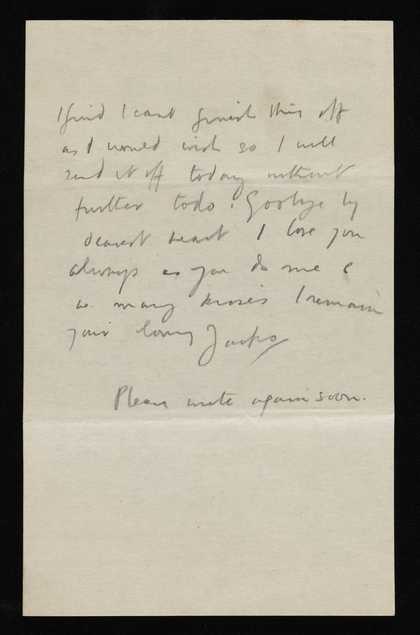 I find I cant finish this off
as I would wish so I will
send it off today without
further todo. Goobye my
dearest heart I love you
always as you do me &
so many kisses I remain
your loving Jacko
Please write again soon.